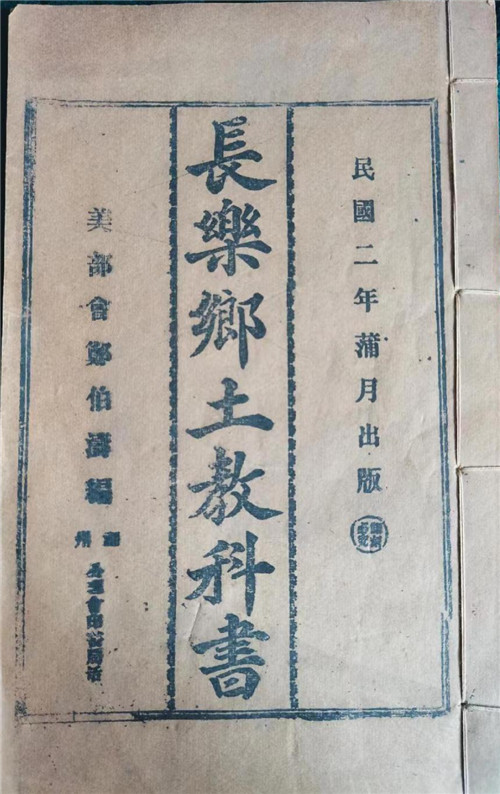 民國二年蒲月出版
長樂鄉土教科書
美部會鄭伯濤編
福州